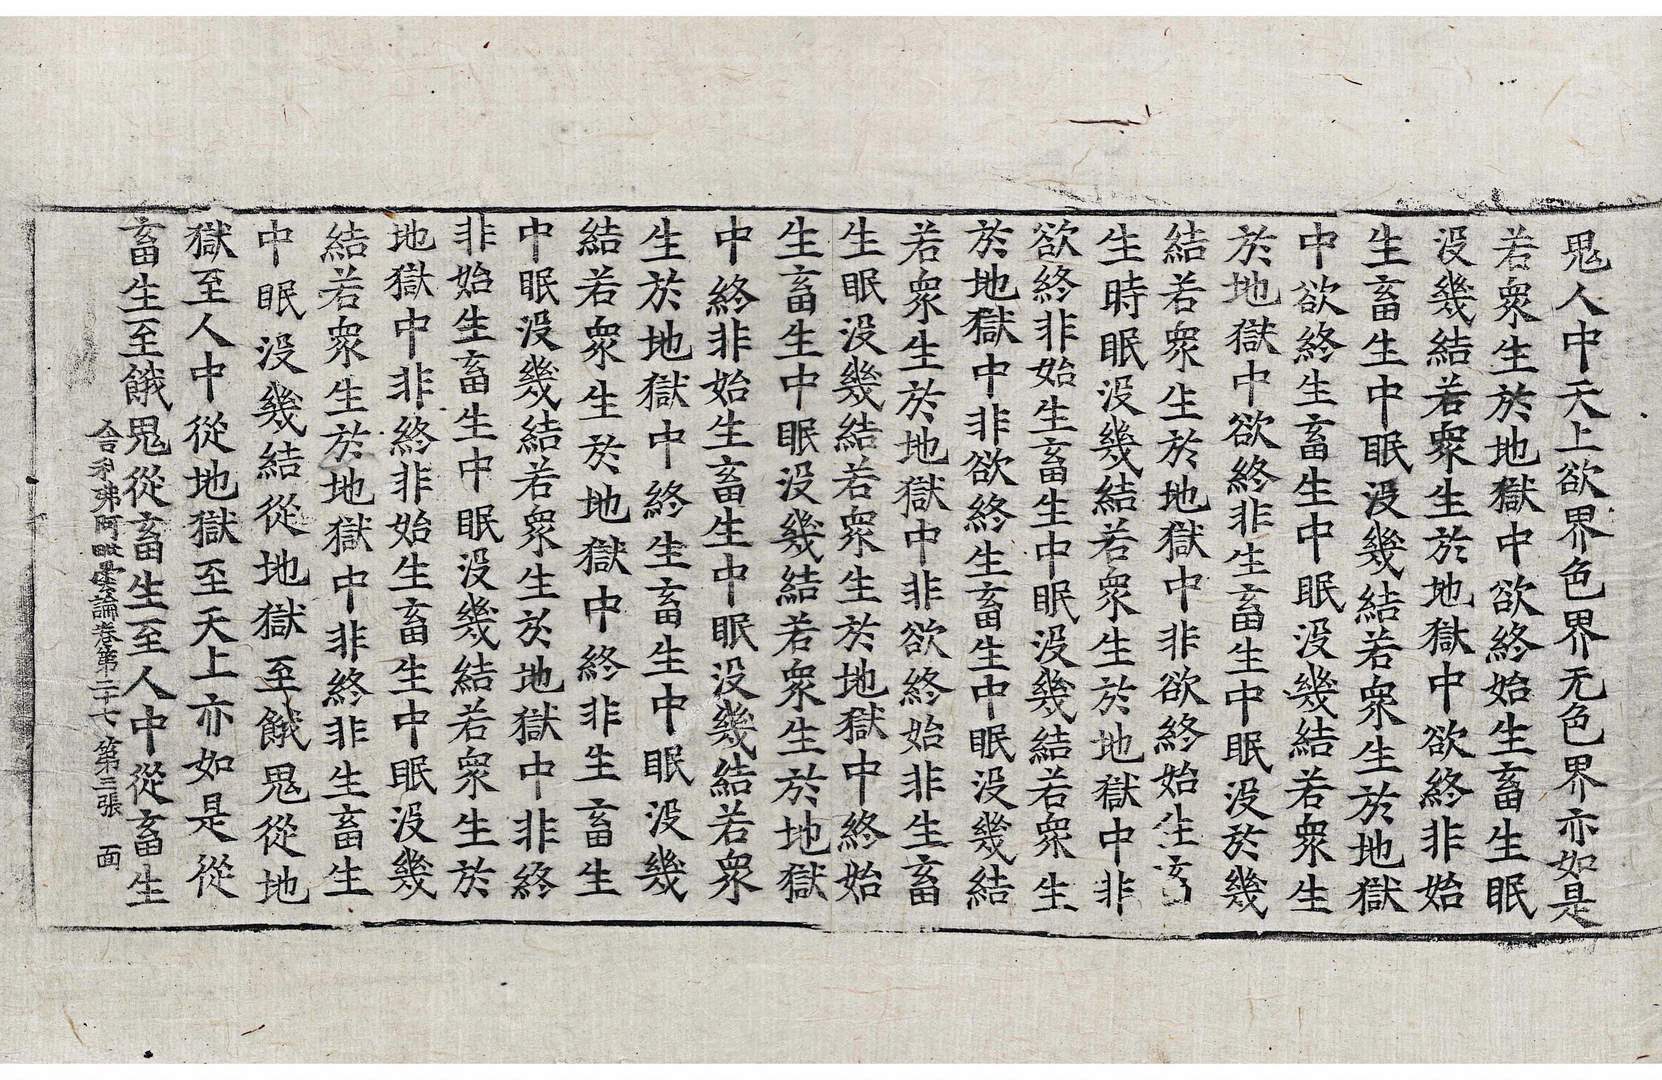 鬼人中天上欲界色界无色界亦如是
若衆生於地獄中欲終始生畜生眠
没幾結若衆生於地獄中欲終非始
生畜生中眠没幾結若衆生於地獄
中欲終生畜生中眠没幾結若衆生
於地獄中欲終非生畜生中眠没於幾
結若衆生於地獄中非欲終始生畜
生時眠没幾結若衆生於地獄中非
欲終非始生畜生中眠没幾結若衆生
於地獄中非欲終生畜生中眠没幾結
若衆生於地獄中非欲終始非生畜
生眠没幾結若衆生於地獄中終始
生畜生中眠没幾結若衆生於地獄
中終非始生畜生中眠没幾結若衆
生於地獄中終生畜生中眠没幾
結若衆生於地獄中終非生畜生
中眠没幾結若衆生於地獄中非終
非始生畜生中眠没幾結若衆生於
地獄中非終非始生畜生中眠没幾
結若衆生於地獄中非終非生畜生
中眠没幾結從地獄至餓鬼從地
獄至人中從地獄至天上亦如是從
畜生至餓鬼從畜生至人中從畜生
舍利弗阿毗曇論卷第二十七 第三張 面